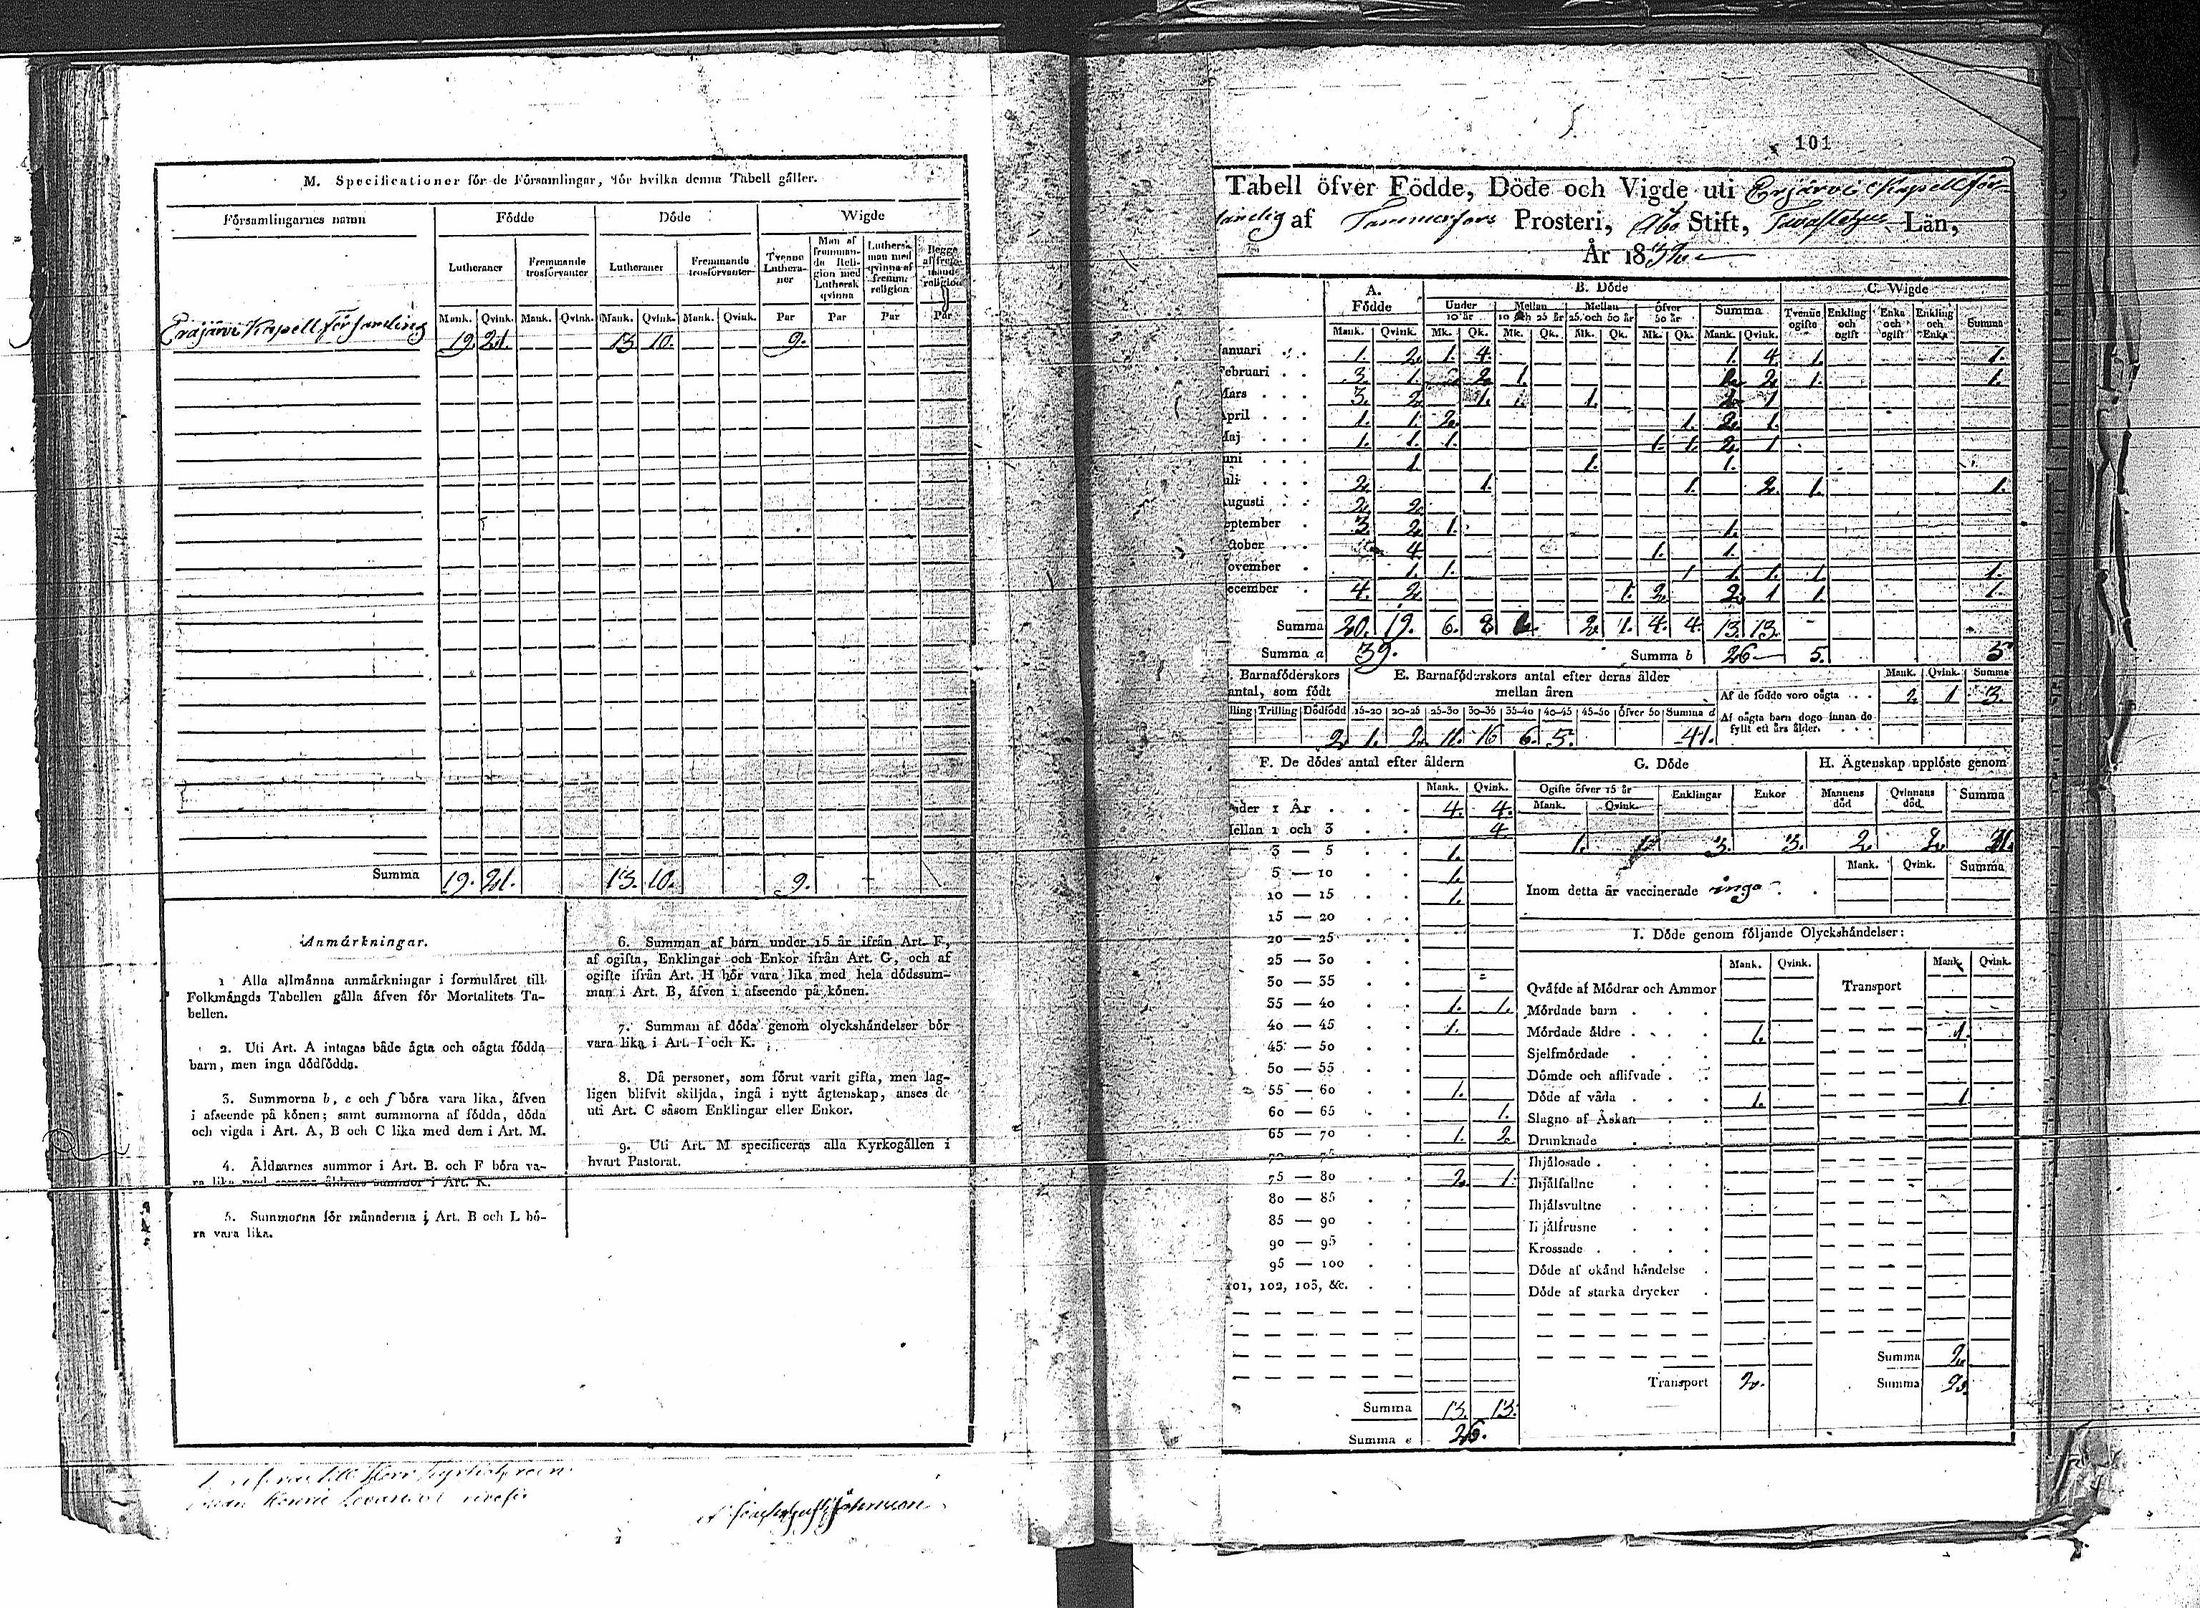 M. Specificationer för de Församlingar, för hvilka denna Tabell gäller.
Församlingarnes namn Födde Döde Wigde
Lutheraner Fremmande trosförvanter Lutheraner Fremmande trosförvanter Tvenne Lutheraner Man af fremmande Religion med Luthersk qvinna Luthersk man med qvinna af fremm: religion Begge af fremmande religion
Mank. Qvink. Mank. Qvink. Mank. Qvink. Mank. Qvink. Par Par Par Par
Eräjärvi Kapell Församling 19. 21. 13 10. 9.
Summa 19. 21. 13. 10. 9.
Anmärkningar.
1 Alla allmänna anmärkningar i formuläret till
Folkmängds Tabellen gälla äfven för Mortalitets Ta-
bellen.
2. Uti Art. A intagas både ägta och oägta födda
barn, men inga dödfödda.
3. Summorna b, e och f böra vara lika, äfven
i afseende på könen; samt summorna af födda, döda
och vigda i Art. A, B och C lika med dem i Art. M.
4. Åldrarnes summor i Art. B. och F böra va-
ra lika med samma åldrars summor i Art. K.
5. Summorna för månaderna i Art. B och L bö-
ra vara lika.
6. Summan af barn under 15 år ifrån Art. F,
af ogifta, Enklingar och Enkor ifrån Art. G, och af
ogifte ifrån Art. H bör vara lika med hela dödssum-
man i Art. B, äfven i afseende på könen.
7. Summan af döda genom olyckshändelser bör
vara lika i Art. I och K.
8. Då personer, som förut varit gifta, men lag-
ligen blifvit skiljda, ingå i nytt ägtenskap, anses de
uti Art. C såsom Enklingar eller Enkor.
9. Uti Art. M specificeras alla Kyrkogällen i
hvart Pastorat.
101
Tabell öfver Födde, Döde och Vigde uti Erjärvi Kapell för-
samlig af Tammerfors Prosteri, Åbo Stift, Tavastehus Län,
År 1832
A. Födde B. Döde C. Wigde
Under 10 år Mellan 10 och 25 år Mellan 25 och 50 år Öfver 50 år Summa Tvenne ogifte Enkling och ogift Enka och ogift Enkling och Enka Summa
Mank. Qvink. Mk. Qk. Mk. Qk. Mk. Qk. Mk. Qk. Mank. Qvink.
anuari 1. 2. 1. 4. 1. 4. 1. 1.
ebruari 3. 1. 2. 1. 2. 1. 1.
Mars 3. 2. 1. 1. 1. 2. 1
April 1. 1. 2. 1. 2. 1.
Maj 1. 1. 1. 1. 1. 2. 1
uni 1. 1. 1.
uli 2. 1. 1. 2. 1. 1.
ugusti 2. 2.
eptember 3. 2. 1. 1.
ctober 4. 1. 1.
ovember 1. 1. 1 1. 1. 1. 1.
ecember 4. 2. 1. 2. 2. 1 1. 1.
Summa 20. 19. 6. 8 2. 1. 4. 4. 13. 13.
Summa a 39. Summa b 26 5. 5
Barnaföderskors antal, som födt
E. Barnaföderskors antal efter deras ålder mellan åren
illing Trilling Dödfödd 15-20 20-25 25-30 30-35 35-40 40-45 45-50 Öfver 50 Summa d
2. 1. 2. 11. 16 6. 5. 41.
Mank. Qvink. Summa
Af de födde voro oägta 2. 1 3.
Af oägta barn dogo innan de
fyllt ett års ålder.
F. De dödes antal efter åldern
Mank. Qvink.
nder 1 År 4. 4.
ellan 1 och 3 4
3 — 5 1.
5 — 10 1.
10 — 15 1.
15 — 20
20 — 25
25 — 30
30 — 35
35 — 40 1. 1.
40 — 45 1.
45 — 50
50 — 55
55 — 60 1.
60 — 65 1.
65 — 70 1. 2.
70 — 75
75 — 80 2. 1.
80 — 85
85 — 90
90 — 95
95 — 100
101, 102, 103, &c.
Summa 13. 13.
Summa e 26.
G. Döde
Ogifte öfver 15 år Enklingar Enkor
Mank. Qvink.
1. 1 3. 3.
H. Ägtenskap upplöste genom
Mannens död Qvinnans död Summa
2. 2.
Mank. Qvink. Summa
Inom detta år vaccinerade inga
I. Döde genom följande Olyckshändelser:
Mank. Qvink. Mank. Qvink.
Qväfde af Mödrar och Ammor Transport
Mördade barn
Mördade äldre 1. 1.
Sjelfmördade
Dömde och aflifvade
Döde af våda 1. 1
Slagne af Åskan
Drunknade
Ihjälosade
Ihjälfallne
Ihjälsvultne
Ihjälfrusne
Krossade
Döde af okänd händelse
Döde af starka drycker
Summa 2.
Transport 2. Summa 2.